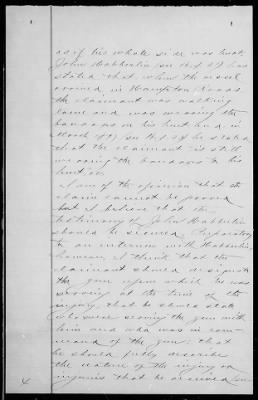 as if his whole side was hurt.
John Habberlin (on
stated that when the vessel
arrived in Hampton Roads
the claimant was walking
lame and was wearing the
bandages on his
March
that the claimant is still
wearing the bandage to his

I am of the opinion that the
claim cannot be proved
but I believe that the
testimony of John Habberlin
should be secured. Preparatory
to an interview with Habberlin,
however, I think that the
claimant should designate
the gun upon which he was
serving at the time of the
injury, that he should state
who were serving the gun with
him and who was in com-
mand of the gun; that
he should fully describe
the nature of the injury or
injuries that he received
4